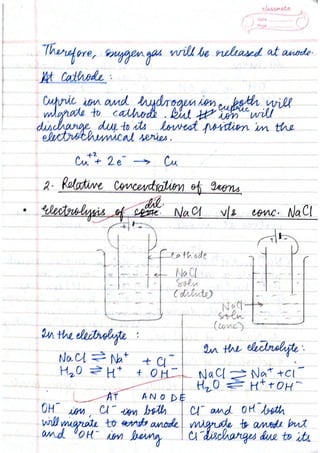 classmate
Date
Page
Therefore, oxygen gas will be released at anode.
At Cathode :
Cupric ion and hydrogen ion both will
migrate to cathode. But cupric ion will
discharge due to its lowest position in the
electrochemical series.
Cu+2 + 2e- → Cu
2. Relative Concentration of Ions.
• Electrolysis of dil. NaCl v/s conc. NaCl
cathode
NaCl
Soln
(dilute)
NaCl
Soln
(conc)
In the electrolyte :
NaCl ⇌ Na+ + Cl-
H2O ⇌ H+ + OH-
AT ANODE
OH- ion, Cl- ion both
will migrate to anode
and OH- ion being
In the electrolyte :
NaCl ⇌ Na+ + Cl-
H2O ⇌ H+ + OH-
Cl- and OH- both
migrate to anode but
Cl- discharges due to its